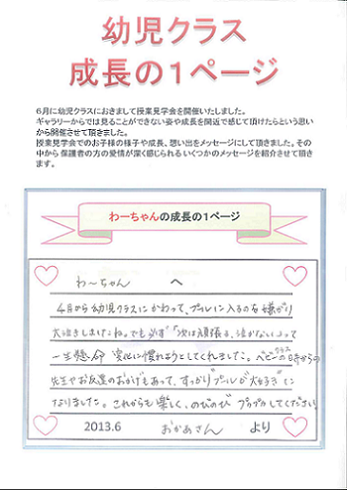 幼児クラス
成長の1ページ
6月に幼児クラスにおきまして授業見学会を開催いたしました。
ギャラリーからでは見ることができない姿や成長を間近で感じて頂けたらという思い
から開催させて頂きました。
授業見学会でのお子様の様子や成長、想い出をメッセージにして頂きました。その
中から保護者の方の愛情が深く感じられるいくつかのメッセージを紹介させて頂き
ます。
わーちゃんの成長の1ページ
わ〜ちゃん へ
4月から幼児クラスにかわって、プールに入るのを嫌がり
大泣きしましたね。でも必ず「次は頑張る、泣かない」って
一生懸命 に慣れようとしてくれました。ベビークラスの時からの
先生やお友達のおかげもあって、すっかり"プールが大好き"に
なりました。これからも楽しく、のびのび プカプカしてください。
2013.6 おかあさん より